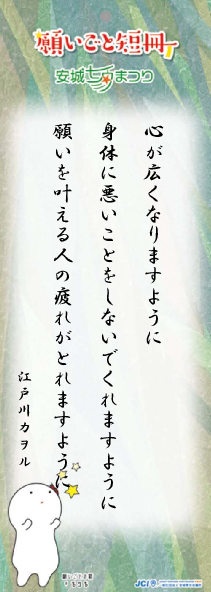 願いごと短冊
安城七夕まつり
心が広くなりますように
身体に悪いことをしないでくれますように
願いを叶える人の疲れがとれますように
江戸川カヲル
JCI